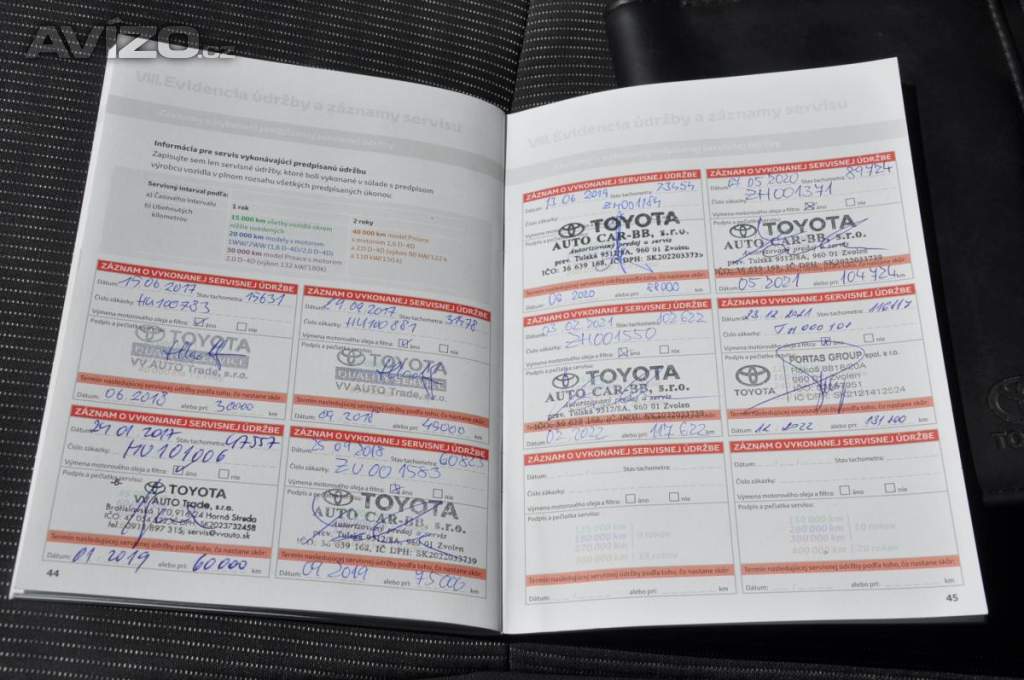 AVÍZO.cz
VIII. Evidencia údržby a záznamy servisu
Informácia pre servis vykonávajúci predpísanú údržbu
Zapisujte sem len servisné údržby, ktoré boli vykonané v súlade s predpisom
výrobcu vozidla v plnom rozsahu všetkých predpísaných úkonov.
Servisný interval podľa:
a) Časového intervalu
b) Ubehnutých
kilometrov
1 rok
15 000 km všetky vozidlá okrem
nižšie uvedených
20 000 km modely s motorom
1WW/2WW (1,6 D-4D/2,0 D-4D)
30 000 km model Proace s motorom
2,0 D-4D (výkon 132 kW/180k)
2 roky
40 000 km model Proace
s motorom 1,6 D-4D
a 2,0 D-4D (výkon 90 kW/122 k
a 110 kW/150 k)
ZÁZNAM O VYKONANEJ SERVISNEJ ÚDRŽBE
Dátum: 15 06 2017 Stav tachometra: 15631
Číslo zákazky: HU100783
Výmena motorového oleja a filtra: áno nie
Podpis a pečiatka
TOYOTA
VV AUTO Trade, s.r.o.
Termín nasledujúcej servisnej údržby podľa toho, čo nastane skôr:
Dátum: 06.2018 alebo pri: 30000 km
ZÁZNAM O VYKONANEJ SERVISNEJ ÚDRŽBE
Dátum: 29.09.2017 Stav tachometra: 31178
Číslo zákazky: HU100881
Výmena motorového oleja a filtra: áno nie
Podpis a pečiatka
TOYOTA
VV AUTO Trade, s.r.o.
Termín nasledujúcej servisnej údržby podľa toho, čo nastane skôr:
Dátum: 09.2018 alebo pri: 45000 km
ZÁZNAM O VYKONANEJ SERVISNEJ ÚDRŽBE
Dátum: 29 01 2017 Stav tachometra: 47557
Číslo zákazky: HU101006
Výmena motorového oleja a filtra: áno nie
Podpis a pečiatka servisu:
TOYOTA
VV AUTO Trade, s.r.o.
Horná Streda
servis@vvauto.sk
Termín nasledujúcej servisnej údržby podľa toho, čo nastane skôr:
Dátum: 01.2019 alebo pri: 60000 km
ZÁZNAM O VYKONANEJ SERVISNEJ ÚDRŽBE
Dátum: 25 09 2018 Stav tachometra: 60825
Číslo zákazky: ZU001583
Výmena motorového oleja a filtra: áno nie
Podpis a pečiatka
TOYOTA
AUTO CAR-BB, s.r.o.
Autorizovaný predaj a servis
IČO: 36 639 168, IČ DPH: SK2022033739
Termín nasledujúcej servisnej údržby podľa toho, čo nastane skôr:
Dátum: 09 2019 alebo pri: 75000 km
44
VIII. Evidencia údržby a záznamy servisu
ZÁZNAM O VYKONANEJ SERVISNEJ ÚDRŽBE
Dátum: 13 06 2019 Stav tachometra: 73454
Číslo zákazky: ZH001184
TOYOTA
AUTO CAR-BB, s.r.o.
Autorizovaný predaj a servis
prev. Tulská 9512/8A, 960 01 Zvolen
IČO: 36 639 168, IČ DPH: SK2022033739
Dátum: 06 2020 alebo pri: 88000 km
ZÁZNAM O VYKONANEJ SERVISNEJ ÚDRŽBE
Dátum: 07 05 2020 Stav tachometra: 89724
Číslo zákazky: ZH001371
Výmena motorového oleja a filtra: áno nie
TOYOTA
AUTO CAR-BB, s.r.o.
Autorizovaný predaj a servis
prev. Tulská 9512/8A, 960 01 Zvolen
Dátum: 05 2021 alebo pri: 104724 km
ZÁZNAM O VYKONANEJ SERVISNEJ ÚDRŽBE
Dátum: 23 02 2021 Stav tachometra: 102622
Číslo zákazky: ZH001550
Výmena motorového oleja a filtra: áno nie
Podpis a pečiatka
TOYOTA
AUTO CAR-BB, s.r.o.
Autorizovaný predaj a servis
prev. Tulská 9512/8A, 960 01 Zvolen
Dátum: 02.2022 alebo pri: 117622 km
ZÁZNAM O VYKONANEJ SERVISNEJ ÚDRŽBE
Dátum: 23 12 2021 Stav tachometra: 116117
Číslo zákazky:
Výmena motorového oleja a filtra: áno nie
Podpis a
PORTAS GROUP spol. s r.o.
TOYOTA
IČ DPH: SK2121412524
Dátum: 12.2022 alebo pri: 131100 km
ZÁZNAM O VYKONANEJ SERVISNEJ ÚDRŽBE
Dátum: Stav tachometra: km
Číslo zákazky:
Výmena motorového oleja a filtra: áno nie
Podpis a pečiatka servisu:
Termín nasledujúcej servisnej údržby podľa toho, čo nastane skôr:
Dátum: alebo pri: km
ZÁZNAM O VYKONANEJ SERVISNEJ ÚDRŽBE
Dátum: Stav tachometra: km
Číslo zákazky:
Výmena motorového oleja a filtra: áno nie
Podpis a pečiatka servisu:
Termín nasledujúcej servisnej údržby podľa toho, čo nastane skôr:
Dátum: alebo pri: km
45